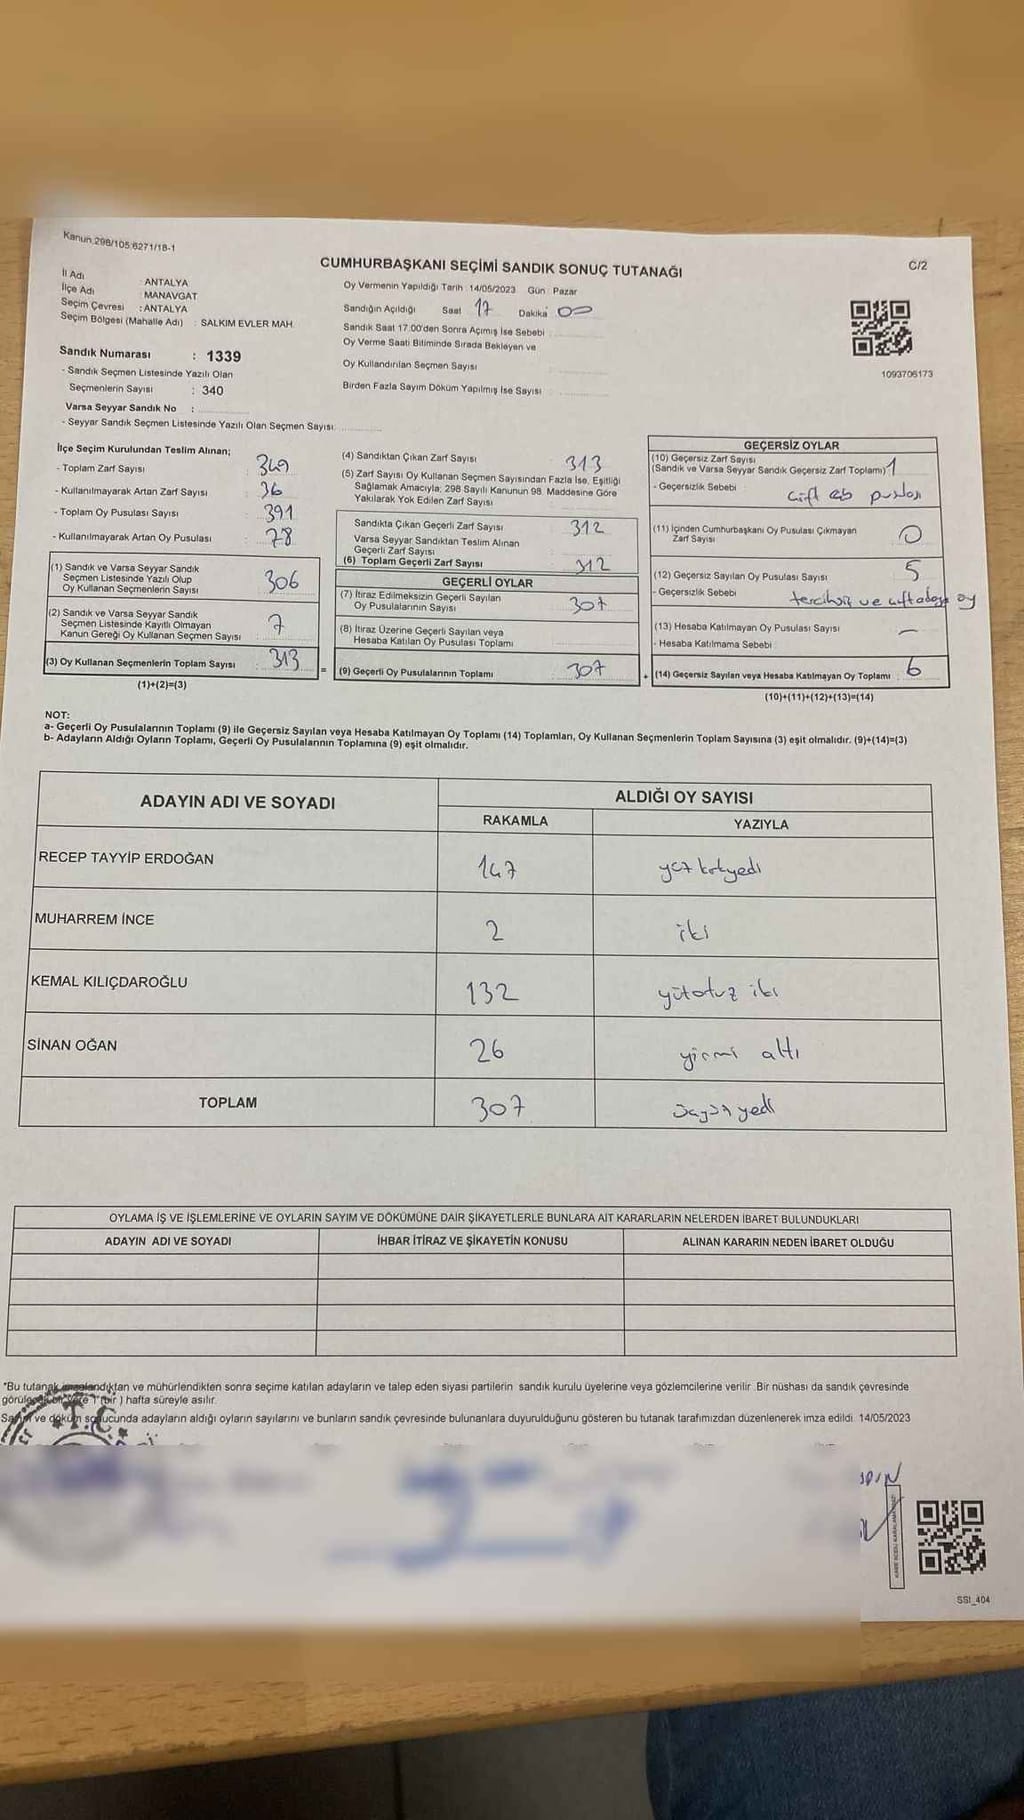 Kanun:298/105:6271/18-1
CUMHURBAŞKANI SEÇİMİ SANDIK SONUÇ TUTANAĞI
C/2
İl Adı : ANTALYA
İlçe Adı : MANAVGAT
Seçim Çevresi : ANTALYA
Seçim Bölgesi (Mahalle Adı) : SALKIM EVLER MAH.
Oy Vermenin Yapıldığı Tarih : 14/05/2023 Gün : Pazar
Sandığın Açıldığı Saat 17 Dakika 00
Sandık Saat 17.00'den Sonra Açımış İse Sebebi
Oy Verme Saati Bitiminde Sırada Bekleyen ve
Oy Kullandırılan Seçmen Sayısı
Birden Fazla Sayım Döküm Yapılmış İse Sayısı
1093706173
Sandık Numarası : 1339
- Sandık Seçmen Listesinde Yazılı Olan
Seçmenlerin Sayısı : 340
Varsa Seyyar Sandık No :
- Seyyar Sandık Seçmen Listesinde Yazılı Olan Seçmen Sayısı:
İlçe Seçim Kurulundan Teslim Alınan;
- Toplam Zarf Sayısı : 349
- Kullanılmayarak Artan Zarf Sayısı : 36
- Toplam Oy Pusulası Sayısı : 391
- Kullanılmayarak Artan Oy Pusulası : 78
(1) Sandık ve Varsa Seyyar Sandık
Seçmen Listesinde Yazılı Olup
Oy Kullanan Seçmenlerin Sayısı 306
(2) Sandık ve Varsa Seyyar Sandık
Seçmen Listesinde Kayıtlı Olmayan
Kanun Gereği Oy Kullanan Seçmen Sayısı 7
(3) Oy Kullanan Seçmenlerin Toplam Sayısı 313
(1)+(2)=(3)
(4) Sandıktan Çıkan Zarf Sayısı 313
(5) Zarf Sayısı Oy Kullanan Seçmen Sayısından Fazla İse, Eşitliği
Sağlamak Amacıyla; 298 Sayılı Kanunun 98. Maddesine Göre
Yakılarak Yok Edilen Zarf Sayısı
Sandıkta Çıkan Geçerli Zarf Sayısı 312
Varsa Seyyar Sandıktan Teslim Alınan
Geçerli Zarf Sayısı
(6) Toplam Geçerli Zarf Sayısı 312
GEÇERLİ OYLAR
(7) İtiraz Edilmeksizin Geçerli Sayılan
Oy Pusulalarının Sayısı 307
(8) İtiraz Üzerine Geçerli Sayılan veya
Hesaba Katılan Oy Pusulası Toplamı
= (9) Geçerli Oy Pusulalarının Toplamı 307
GEÇERSİZ OYLAR
(10) Geçersiz Zarf Sayısı
(Sandık ve Varsa Seyyar Sandık Geçersiz Zarf Toplamı) 1
- Geçersizlik Sebebi çift cb pusulası
(11) İçinden Cumhurbaşkanı Oy Pusulası Çıkmayan
Zarf Sayısı 0
(12) Geçersiz Sayılan Oy Pusulası Sayısı 5
- Geçersizlik Sebebi tercihsiz ve çift adaya oy
(13) Hesaba Katılmayan Oy Pusulası Sayısı –
- Hesaba Katılmama Sebebi
+ (14) Geçersiz Sayılan veya Hesaba Katılmayan Oy Toplamı 6
(10)+(11)+(12)+(13)=(14)
NOT:
a- Geçerli Oy Pusulalarının Toplamı (9) ile Geçersiz Sayılan veya Hesaba Katılmayan Oy Toplamı (14) Toplamları, Oy Kullanan Seçmenlerin Toplam Sayısına (3) eşit olmalıdır. (9)+(14)=(3)
b- Adayların Aldığı Oyların Toplamı, Geçerli Oy Pusulalarının Toplamına (9) eşit olmalıdır.
ADAYIN ADI VE SOYADI ALDIĞI OY SAYISI
RAKAMLA YAZIYLA
RECEP TAYYİP ERDOĞAN 147 yüz kırkyedi
MUHARREM İNCE 2 iki
KEMAL KILIÇDAROĞLU 132 yüzotuz iki
SİNAN OĞAN 26 yirmi altı
TOPLAM 307 üçyüz yedi
OYLAMA İŞ VE İŞLEMLERİNE VE OYLARIN SAYIM VE DÖKÜMÜNE DAİR ŞİKAYETLERLE BUNLARA AİT KARARLARIN NELERDEN İBARET BULUNDUKLARI
ADAYIN ADI VE SOYADI İHBAR İTİRAZ VE ŞİKAYETİN KONUSU ALINAN KARARIN NEDEN İBARET OLDUĞU
*Bu tutanak imzalandıktan ve mühürlendikten sonra seçime katılan adayların ve talep eden siyasi partilerin sandık kurulu üyelerine veya gözlemcilerine verilir. Bir nüshası da sandık çevresinde
1 (bir) hafta süreyle asılır.
Sayım ve döküm sonucunda adayların aldığı oyların sayılarını ve bunların sandık çevresinde bulunanlara duyurulduğunu gösteren bu tutanak tarafımızdan düzenlenerek imza edildi. 14/05/2023
T.C.
SSI_404